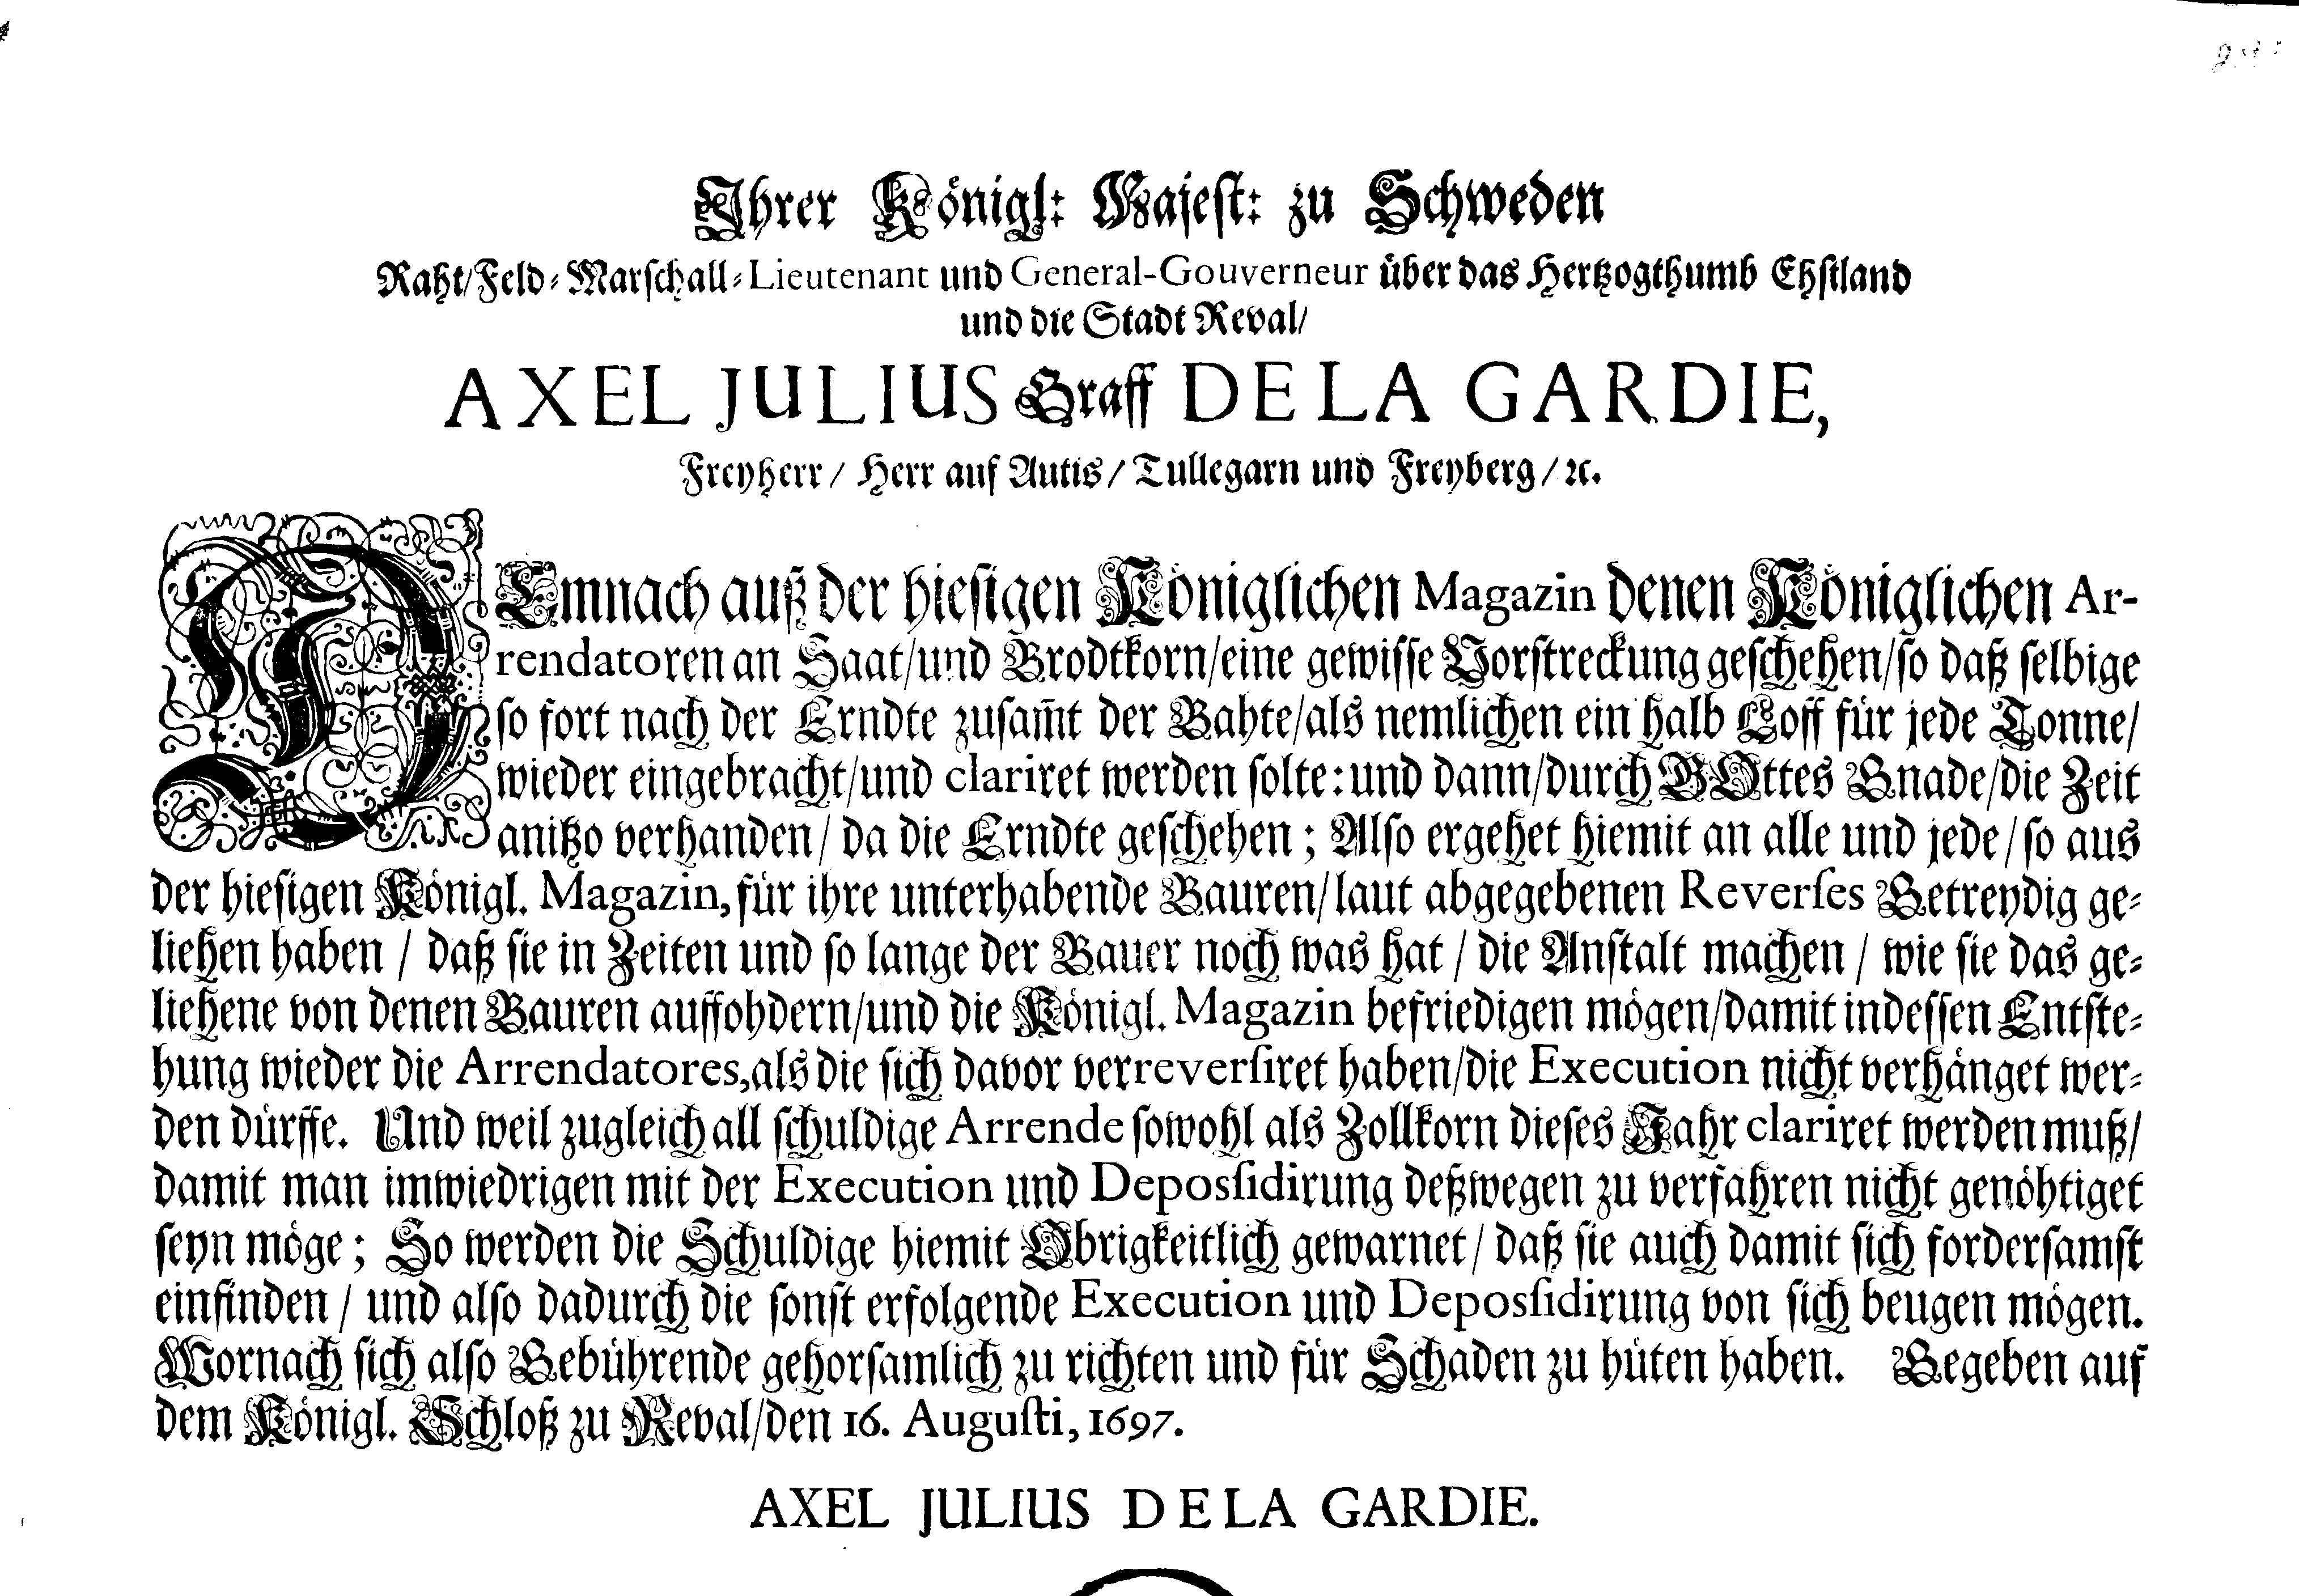 Ihrer Königl: Majest: zu Schweden
Raht/Feld-Marschall-Lieutenant und General-Gouverneur über das Hertzogthumb Ehstland
und die Stadt Reval/
AXEL JULIUS Graff DE LA GARDIE,
Freyherr / Herr auf Autis / Tullegarn und Freyberg / ꝛc.
DEmnach auß der hiesigen Königlichen Magazin denen Königlichen Ar-
rendatoren an Saat/und Brodtkorn/eine gewisse Vorstreckung geschehen/so daß selbige
so fort nach der Erndte zusam̃t der Bahte/als nemlichen ein halb Loff für jede Tonne/
wieder eingebracht/und clariret werden solte: und dann/durch GOttes Gnade/die Zeit
anitzo verhanden / da die Erndte geschehen ; Also ergehet hiemit an alle und jede / so aus
der hiesigen Königl. Magazin, für ihre unterhabende Bauren/ laut abgegebenen Reverses Getreydig ge-
liehen haben / daß sie in Zeiten und so lange der Bauer noch was hat / die Anstalt machen / wie sie das ge-
liehene von denen Bauren auffohdern/und die Königl. Magazin befriedigen mögen/damit indessen Entste-
hung wieder die Arrendatores,als die sich davor verreversiret haben/die Execution nicht verhänget wer-
den dürffe. Und weil zugleich all schuldige Arrende sowohl als Zollkorn dieses Jahr clariret werden muß/
damit man imwiedrigen mit der Execution und Depossidirung deßwegen zu verfahren nicht genöhtiget
seyn möge ; So werden die Schuldige hiemit Obrigkeitlich gewarnet / daß sie auch damit sich fordersamst
einfinden / und also dadurch die sonst erfolgende Execution und Depossidirung von sich beugen mögen.
Wornach sich also Gebührende gehorsamlich zu richten und für Schaden zu hüten haben. Gegeben auf
dem Königl. Schloß zu Reval/den 16. Augusti, 1697.
AXEL JULIUS DE LA GARDIE.